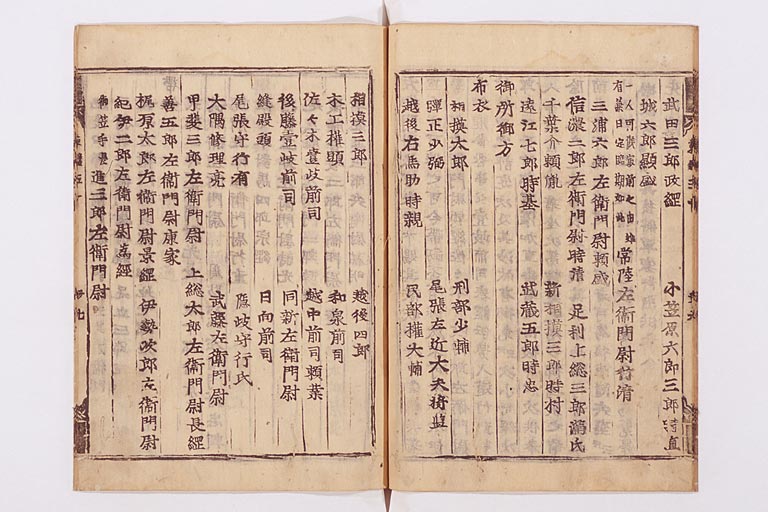 武田三郎政経 小笠原六郎三郎時直
城六郎顕盛
人々可供奉前之由雖
有兼日定臨期如此 常陸左衛門尉行清
三浦六郎左衛門尉頼盛
信濃三郎左衛門尉時清 足利上総三郎満氏
千葉介頼胤 新相摸三郎時村
遠江七郎時基 武蔵五郎時忠
御所御方
布衣
相摸太郎 刑部少輔
弾正少弼 尾張左近大夫将監
越後右馬助時親 民部権大輔
相摸三郎 越後四郎
木工権頭 和泉前司
佐々木壹岐前司 越中前司頼業
後藤壹岐前司 同新左衛門尉
縫殿頭 日向前司
尾張守行有 隠岐守行氏
大隅修理亮 武藤左衛門尉
甲斐三郎左衛門尉 上総太郎左衛門尉長經
善五郎左衛門尉康家
梶原太郎左衛門尉景經 伊勢次郎左衛門尉
紀伊二郎左衛門尉為經
進三郎左衛門尉